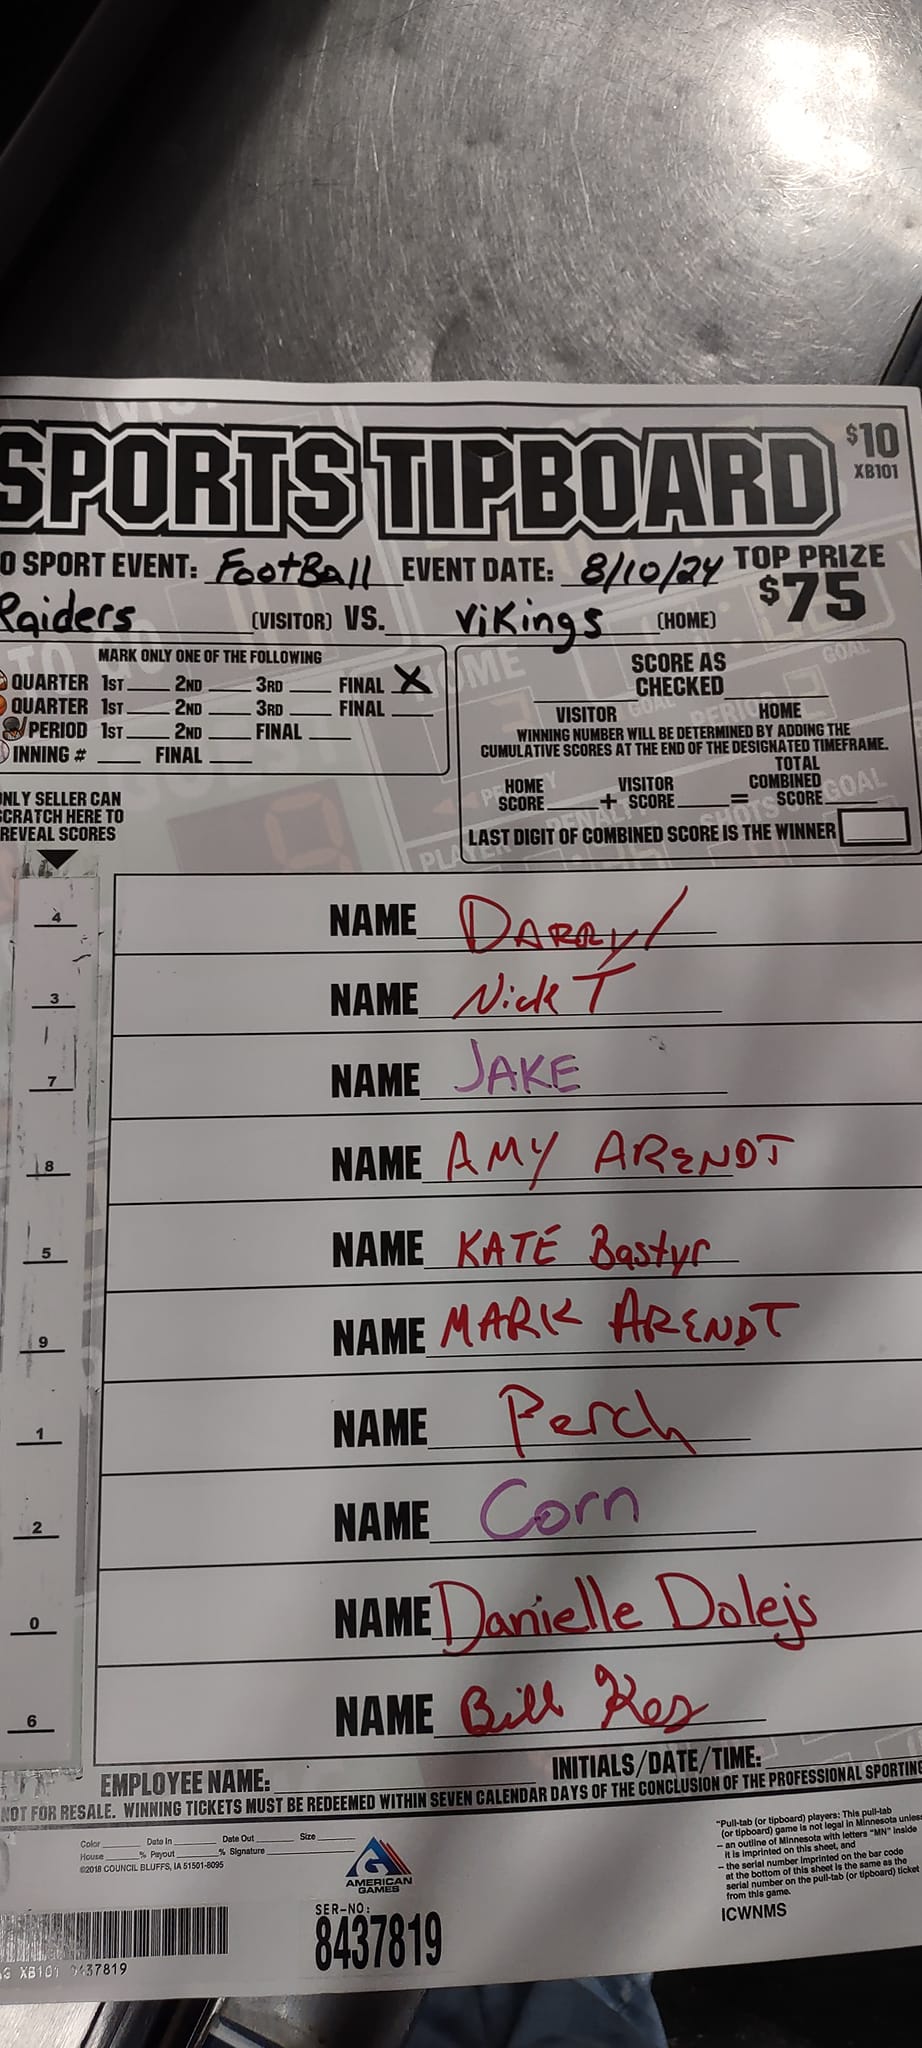 SPORTS TIPBOARD $10
XB101
SPORT EVENT: FootBall EVENT DATE: 8/10/24 TOP PRIZE
$75
Raiders (VISITOR) VS. Vikings (HOME)
MARK ONLY ONE OF THE FOLLOWING
QUARTER 1ST 2ND 3RD FINAL X
QUARTER 1ST 2ND 3RD FINAL
PERIOD 1ST 2ND FINAL
INNING # FINAL
SCORE AS
CHECKED
VISITOR HOME
WINNING NUMBER WILL BE DETERMINED BY ADDING THE
CUMULATIVE SCORES AT THE END OF THE DESIGNATED TIMEFRAME.
HOME SCORE + VISITOR SCORE = TOTAL COMBINED SCORE
LAST DIGIT OF COMBINED SCORE IS THE WINNER
ONLY SELLER CAN
SCRATCH HERE TO
REVEAL SCORES
4 NAME DARRyl
3 NAME Nick T
7 NAME JAKE
8 NAME AMY ARENDT
5 NAME KATE Bastyr
9 NAME MARK ARENDT
1 NAME Perch
2 NAME Corn
0 NAME Danielle Dolejs
6 NAME Bill Kes
EMPLOYEE NAME: INITIALS/DATE/TIME:
NOT FOR RESALE. WINNING TICKETS MUST BE REDEEMED WITHIN SEVEN CALENDAR DAYS OF THE CONCLUSION OF THE PROFESSIONAL SPORTING
Color Date In Date Out Size
House % Payout % Signature
©2018 COUNCIL BLUFFS, IA 51501-8095
AMERICAN
GAMES
*Pull-tab (or tipboard) players: This pull-tab
(or tipboard) game is not legal in Minnesota unless
– an outline of Minnesota with letters "MN" inside
it is imprinted on this sheet, and
– the serial number imprinted on the bar code
at the bottom of this sheet is the same as the
serial number on the pull-tab (or tipboard) ticket
from this game.
ICWNMS
SER-NO:
8437819
XB101 8437819